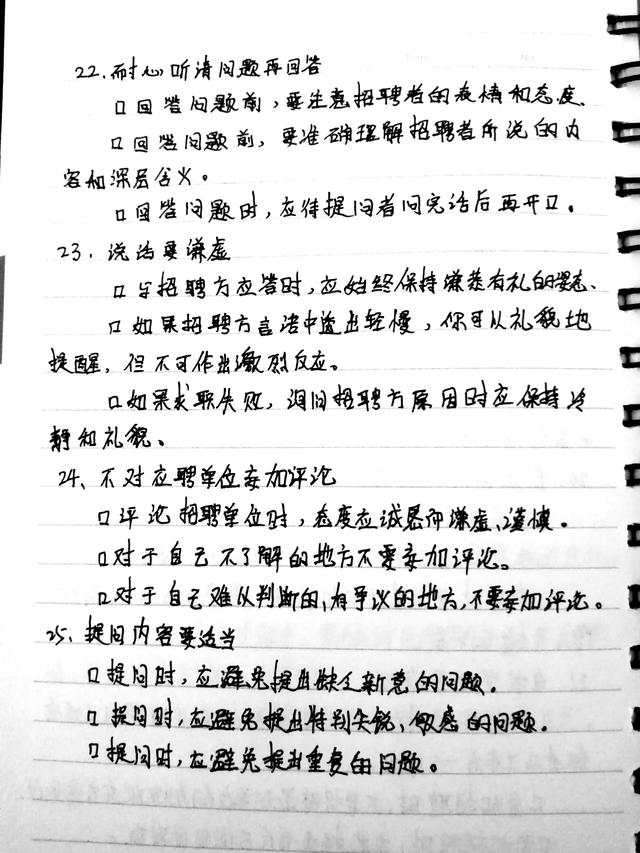 22.耐心听清问题再回答
□回答问题前,要注意招聘者的表情和态度.
□回答问题前,要准确理解招聘者所说的内
容和深层含义。
□回答问题时,应待提问者问完话后再开口。
23.说话要谦虚
□与招聘方应答时,应始终保持谦恭有礼的姿态.
□如果招聘方言语中透出轻慢,你可以礼貌地
提醒,但不可作出激烈反应。
□如果求职失败,询问招聘方原因时应保持冷
静和礼貌。
24、不对应聘单位妄加评论
□评论招聘单位时,态度应诚恳而谦虚、谨慎。
□对于自己不了解的地方不要妄加评论。
□对于自己难以判断的,有争议的地方,不要妄加评论。
25.提问内容要适当
□提问时,应避免提出缺乏新意的问题.
□提问时,应避免提出特别尖锐、敏感的问题.
□提问时,应避免提出重复的问题。